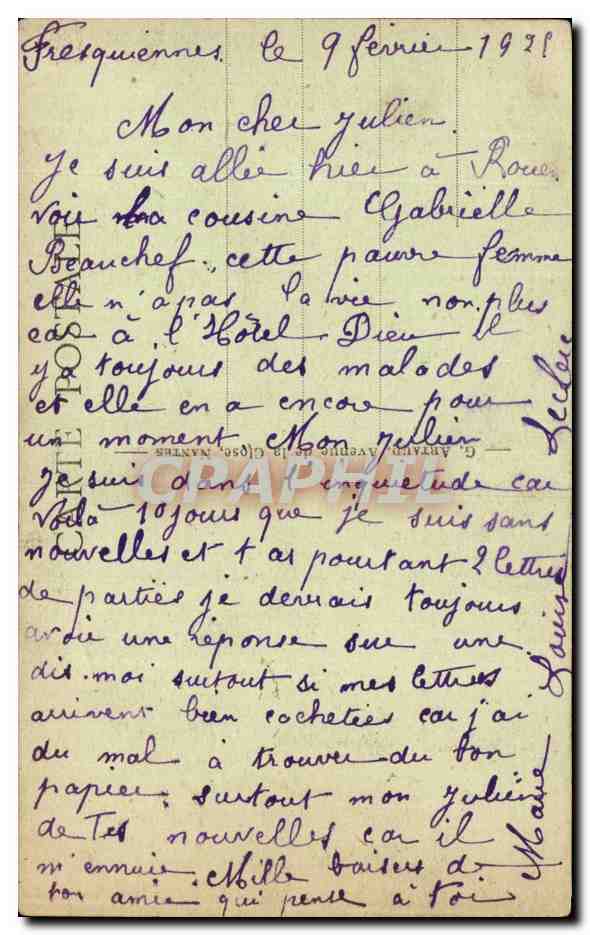 Fresquiennes le 9 fevrier 1921
Mon cher Julien
Je suis allée hier à Rouen
voir ta cousine Gabrielle
Beauchef, cette pauvre femme
elle n'a pas la vie non plus
car à l'Hôtel-Dieu il
y a toujours des malades
et elle en a encore pour
un moment Mon Julien
Je suis dans l'inquietude car
voilà 10 jours que je suis sans
nouvelles et t as pourtant 2 lettres
de parties je devrais toujours
avoir une réponse sur une
dis-moi surtout si mes lettres
arrivent bien cachetées car j'ai
du mal à trouver du bon
papier. surtout mon Julien
de tes nouvelles car il
m'ennuie. Mille baisers de
ton amie qui pense à toi
Marie Louise Leclerc
CARTE POSTALE
G. ARTAUD, Avenue de la Close, NANTES
CPAPHIL